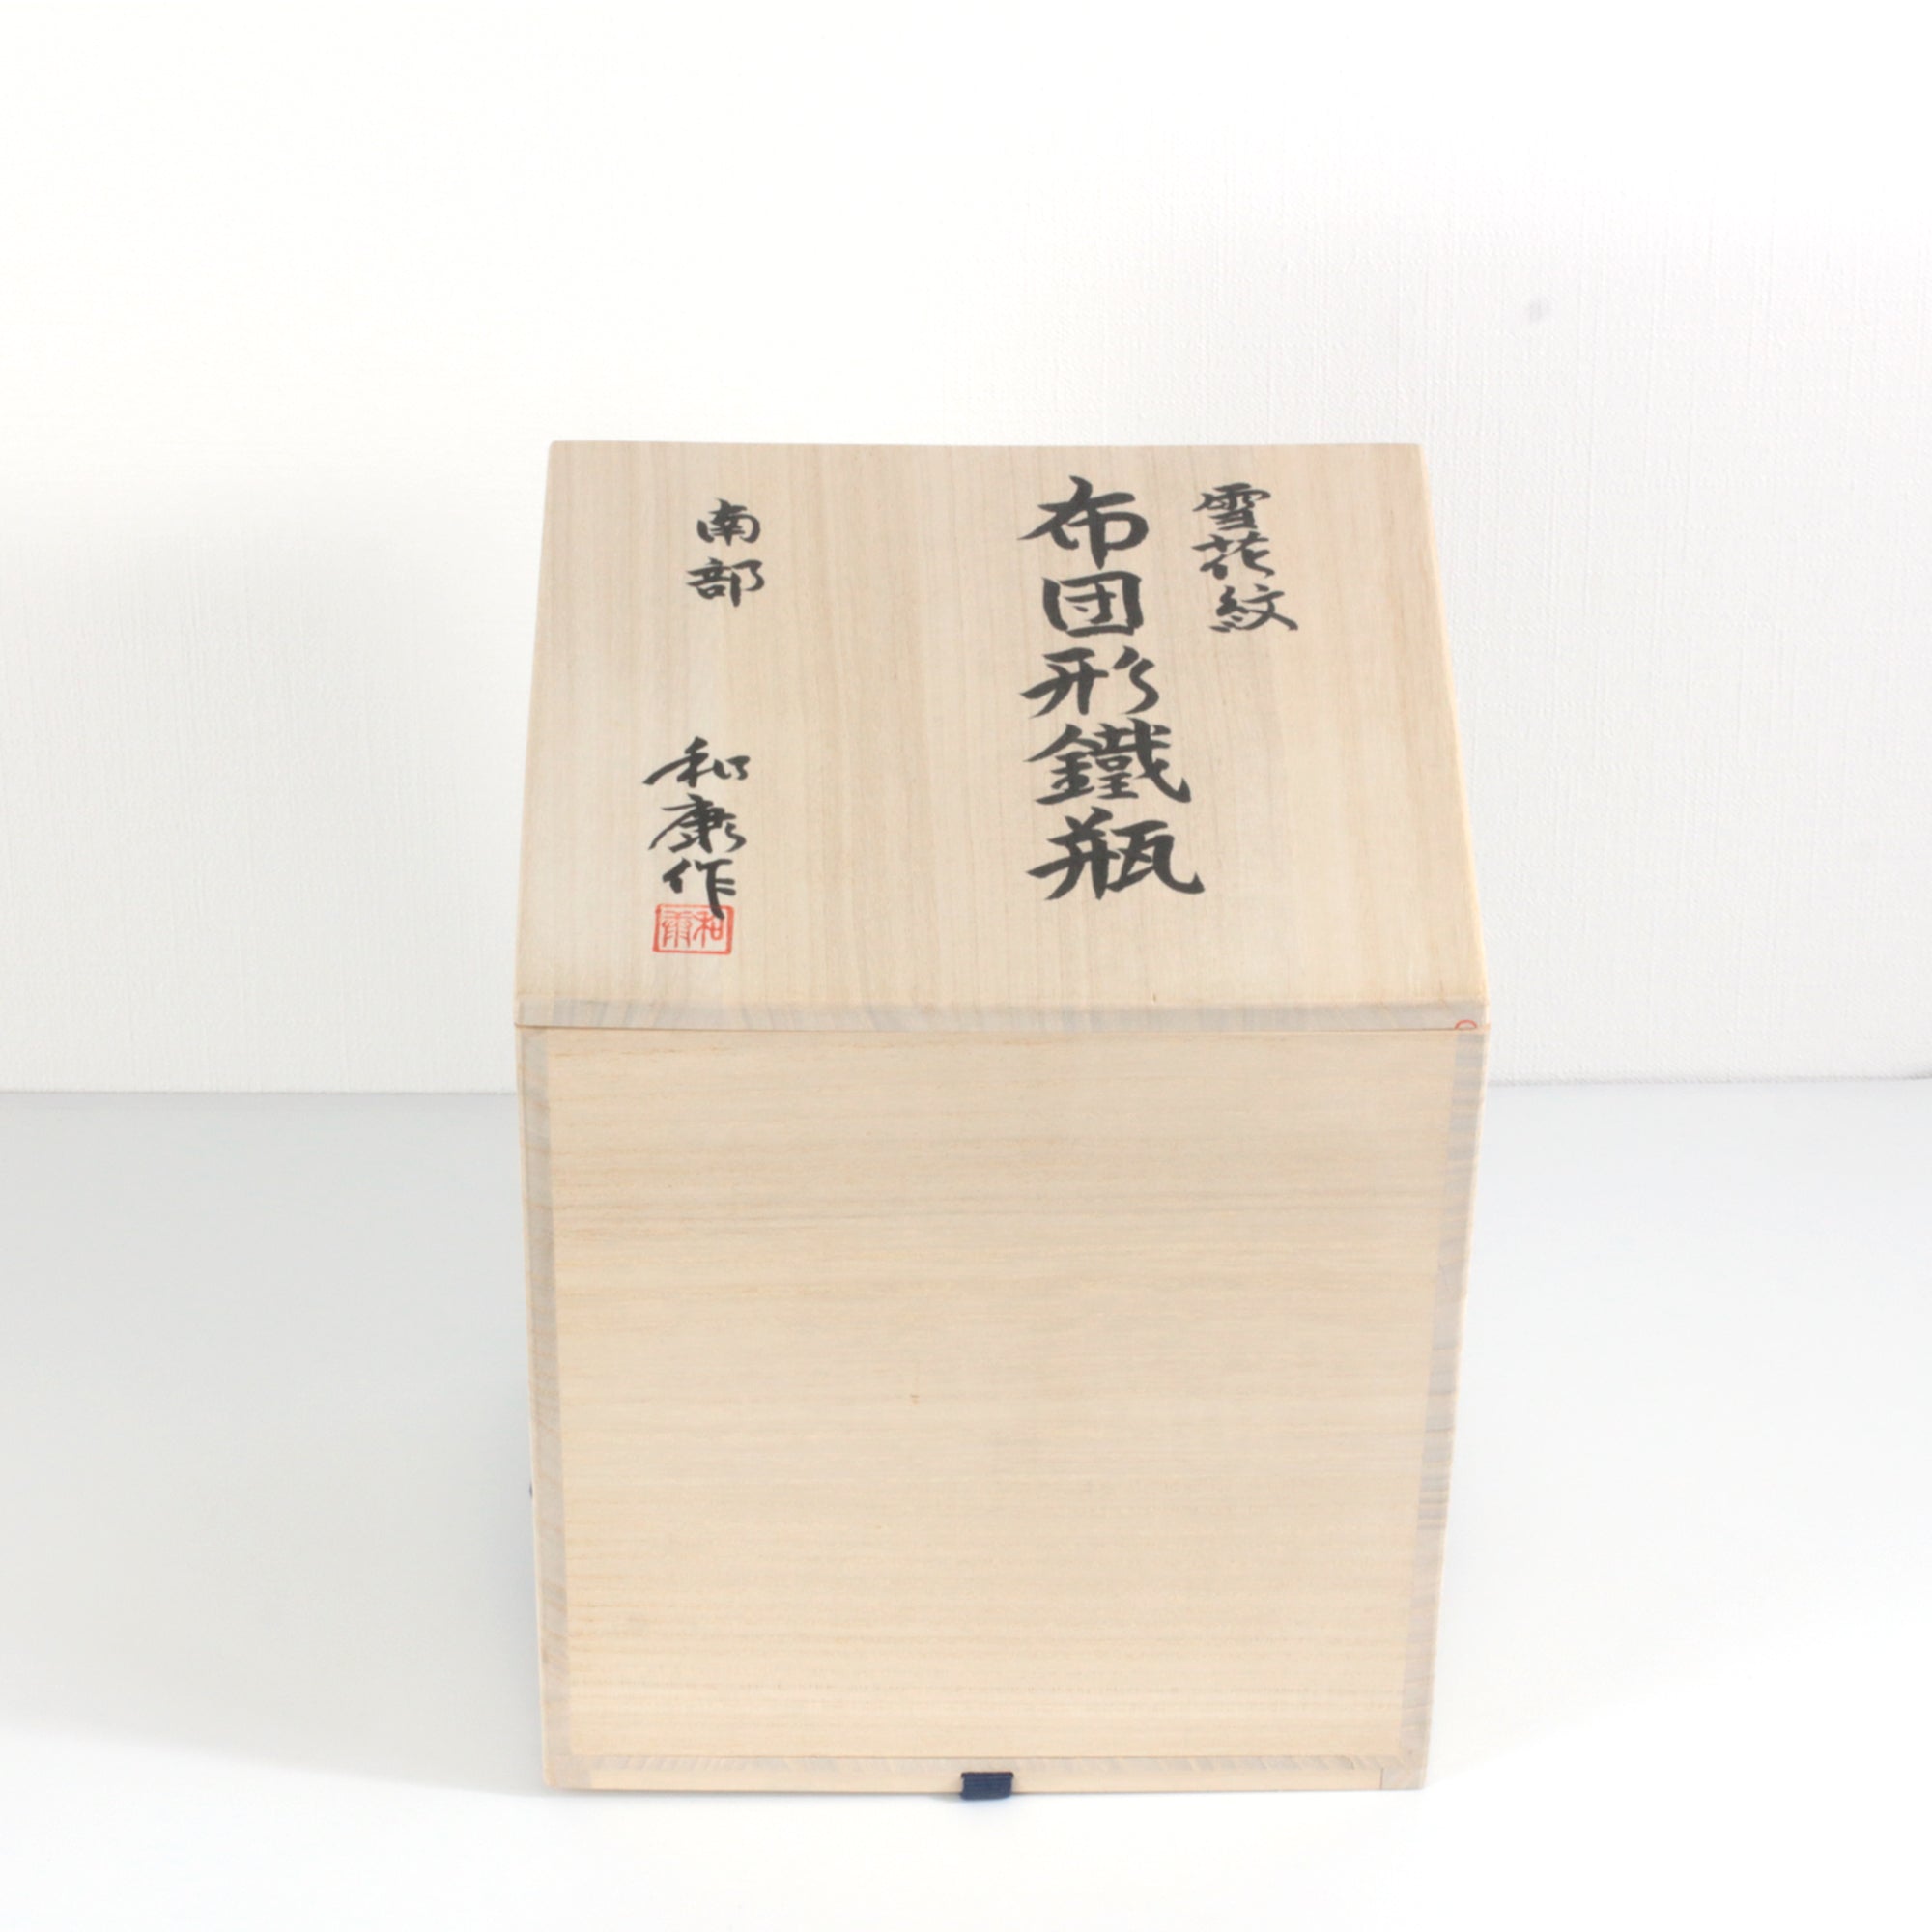 雪花紋
布団形鐵瓶
南部
和康作
和康